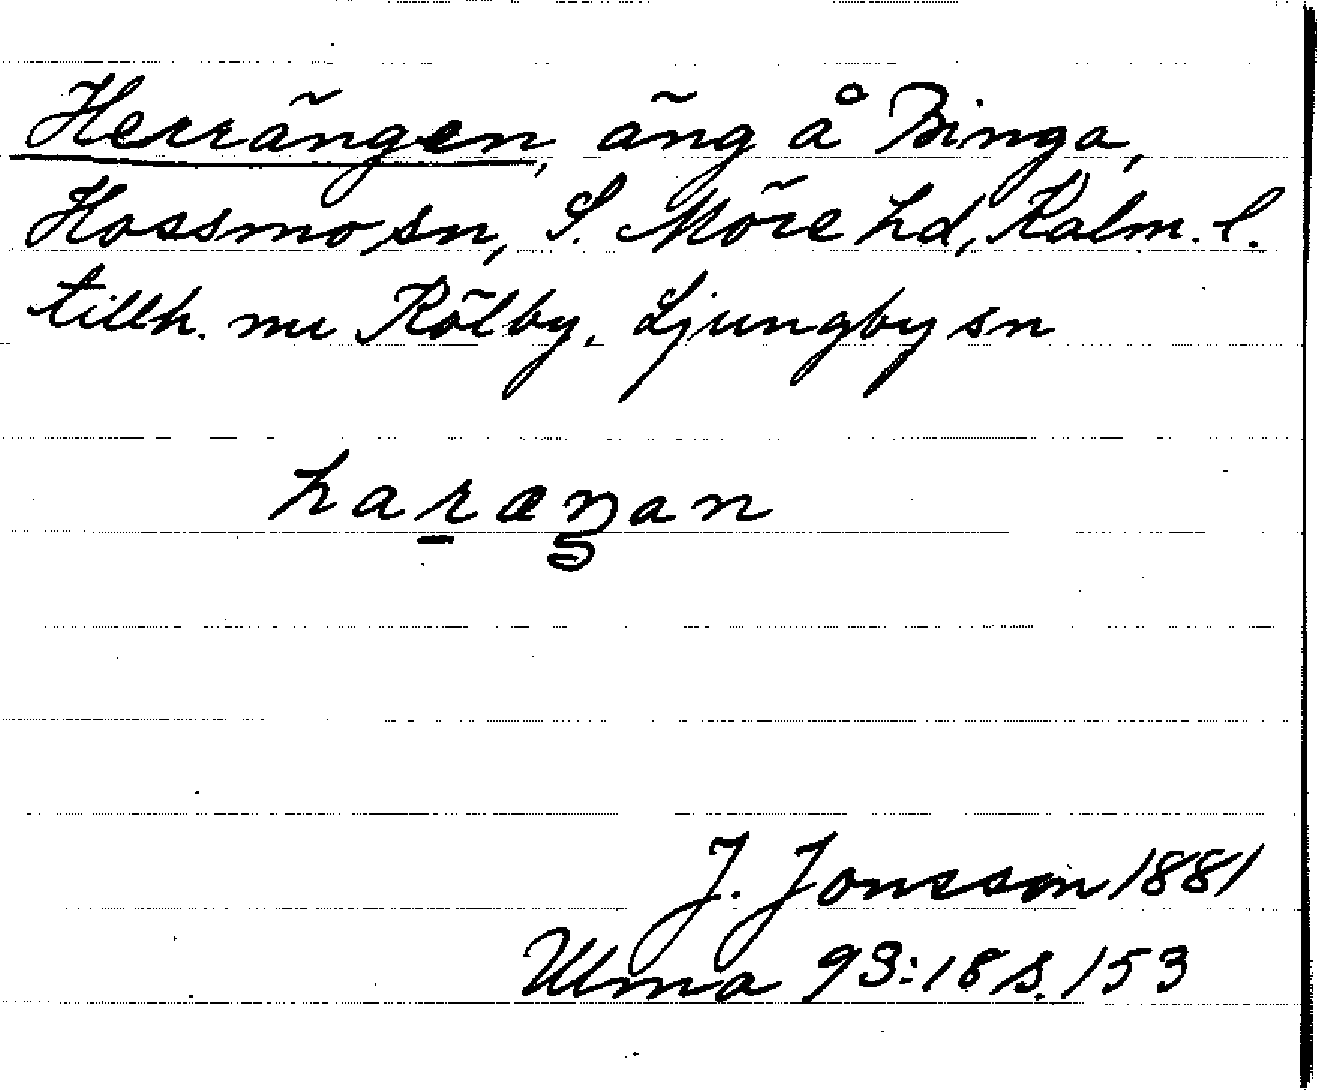 Herrängen, äng å Binga,
Hossmo sn, S. Möre hd, Kalm. l.
tillh. nu Kölby, Ljungby sn
haræŋan
J. Jonsson 1881
Ulma 93:18 s. 153